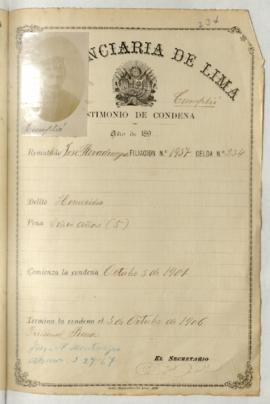 234
NCIARIA DE LIMA
Cumplió
STIMONIO DE CONDENA
Cumplió
Año de 189
Rematado José FILIACIÓN N.º 1957 CELDA N.º 234
Delito Homicidio
Pena cinco años (5)
Comienza la condena Octubre 3 de 1901
Termina la condena el 3 de Octubre de 1906
Tribunal
EL SECRETARIO